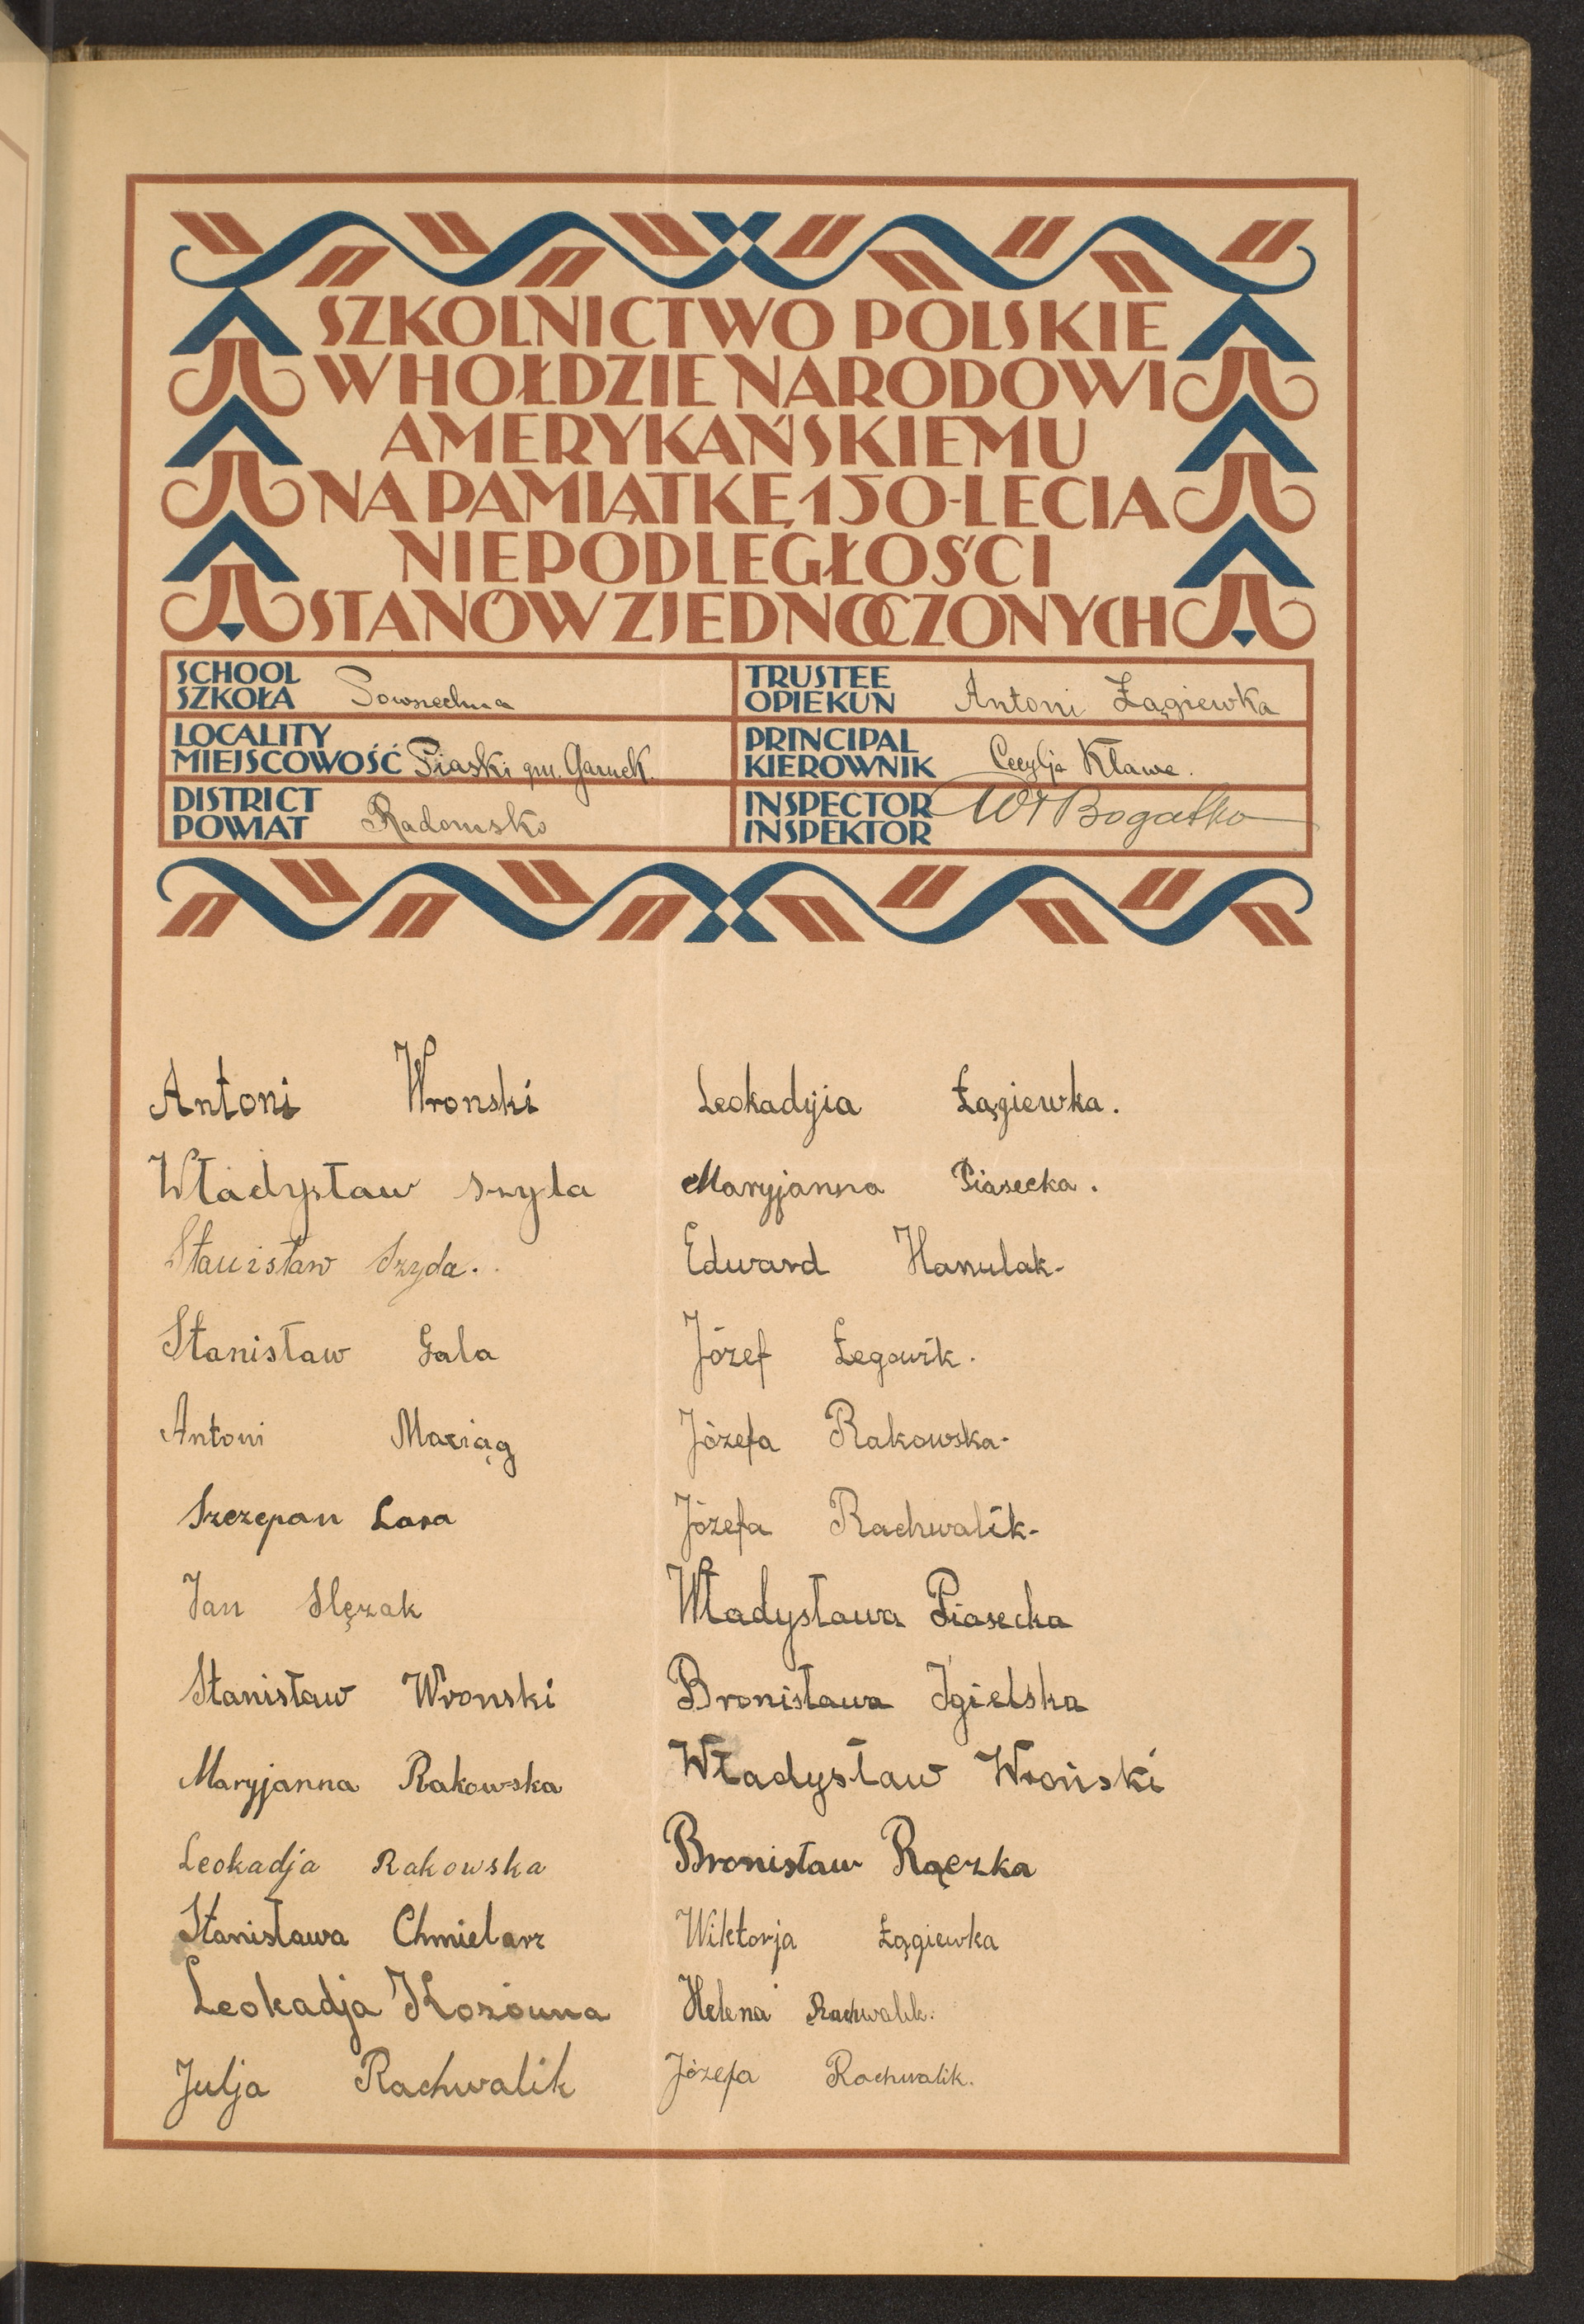 SZKOLNICTWO POLSKIE
W HOŁDZIE NARODOWI
AMERYKAŃSKIEMU
NA PAMIĄTKĘ 150-LECIA
NIEPODLEGŁOŚCI
STANÓW ZJEDNOCZONYCH
SCHOOL
SZKOŁA Powszechna
TRUSTEE
OPIEKUN Antoni Łągiewka
LOCALITY
MIEJSCOWOŚĆ Piaski gm. Garnek.
PRINCIPAL
KIEROWNIK Cecylja Kławe.
DISTRICT
POWIAT Radomsko
INSPECTOR
INSPEKTOR Wł Bogatko
Antoni Wronski
Władysław Szyda
Stanisław Szyda.
Stanisław Gala
Antoni Maciąg
Szczepan Lara
Jan Slęzak
Stanisław Wronski
Maryjanna Rakowska
Leokadja Rakowska
Stanisława Chmielarz
Leokadja Kozówna
Julja Rachwalik
Leokadyja Łągiewka.
Maryjanna Piasecka.
Edward Hanulak-
Józef Łegowik.
Józefa Rakowska-
Józefa Rachwalik-
Władysława Piasecka
Bronisława Jgielska
Władysław Wroński
Bronisław Rączka
Wiktorja Łągiewka
Helena Rachwalik.
Józefa Rachwalik.